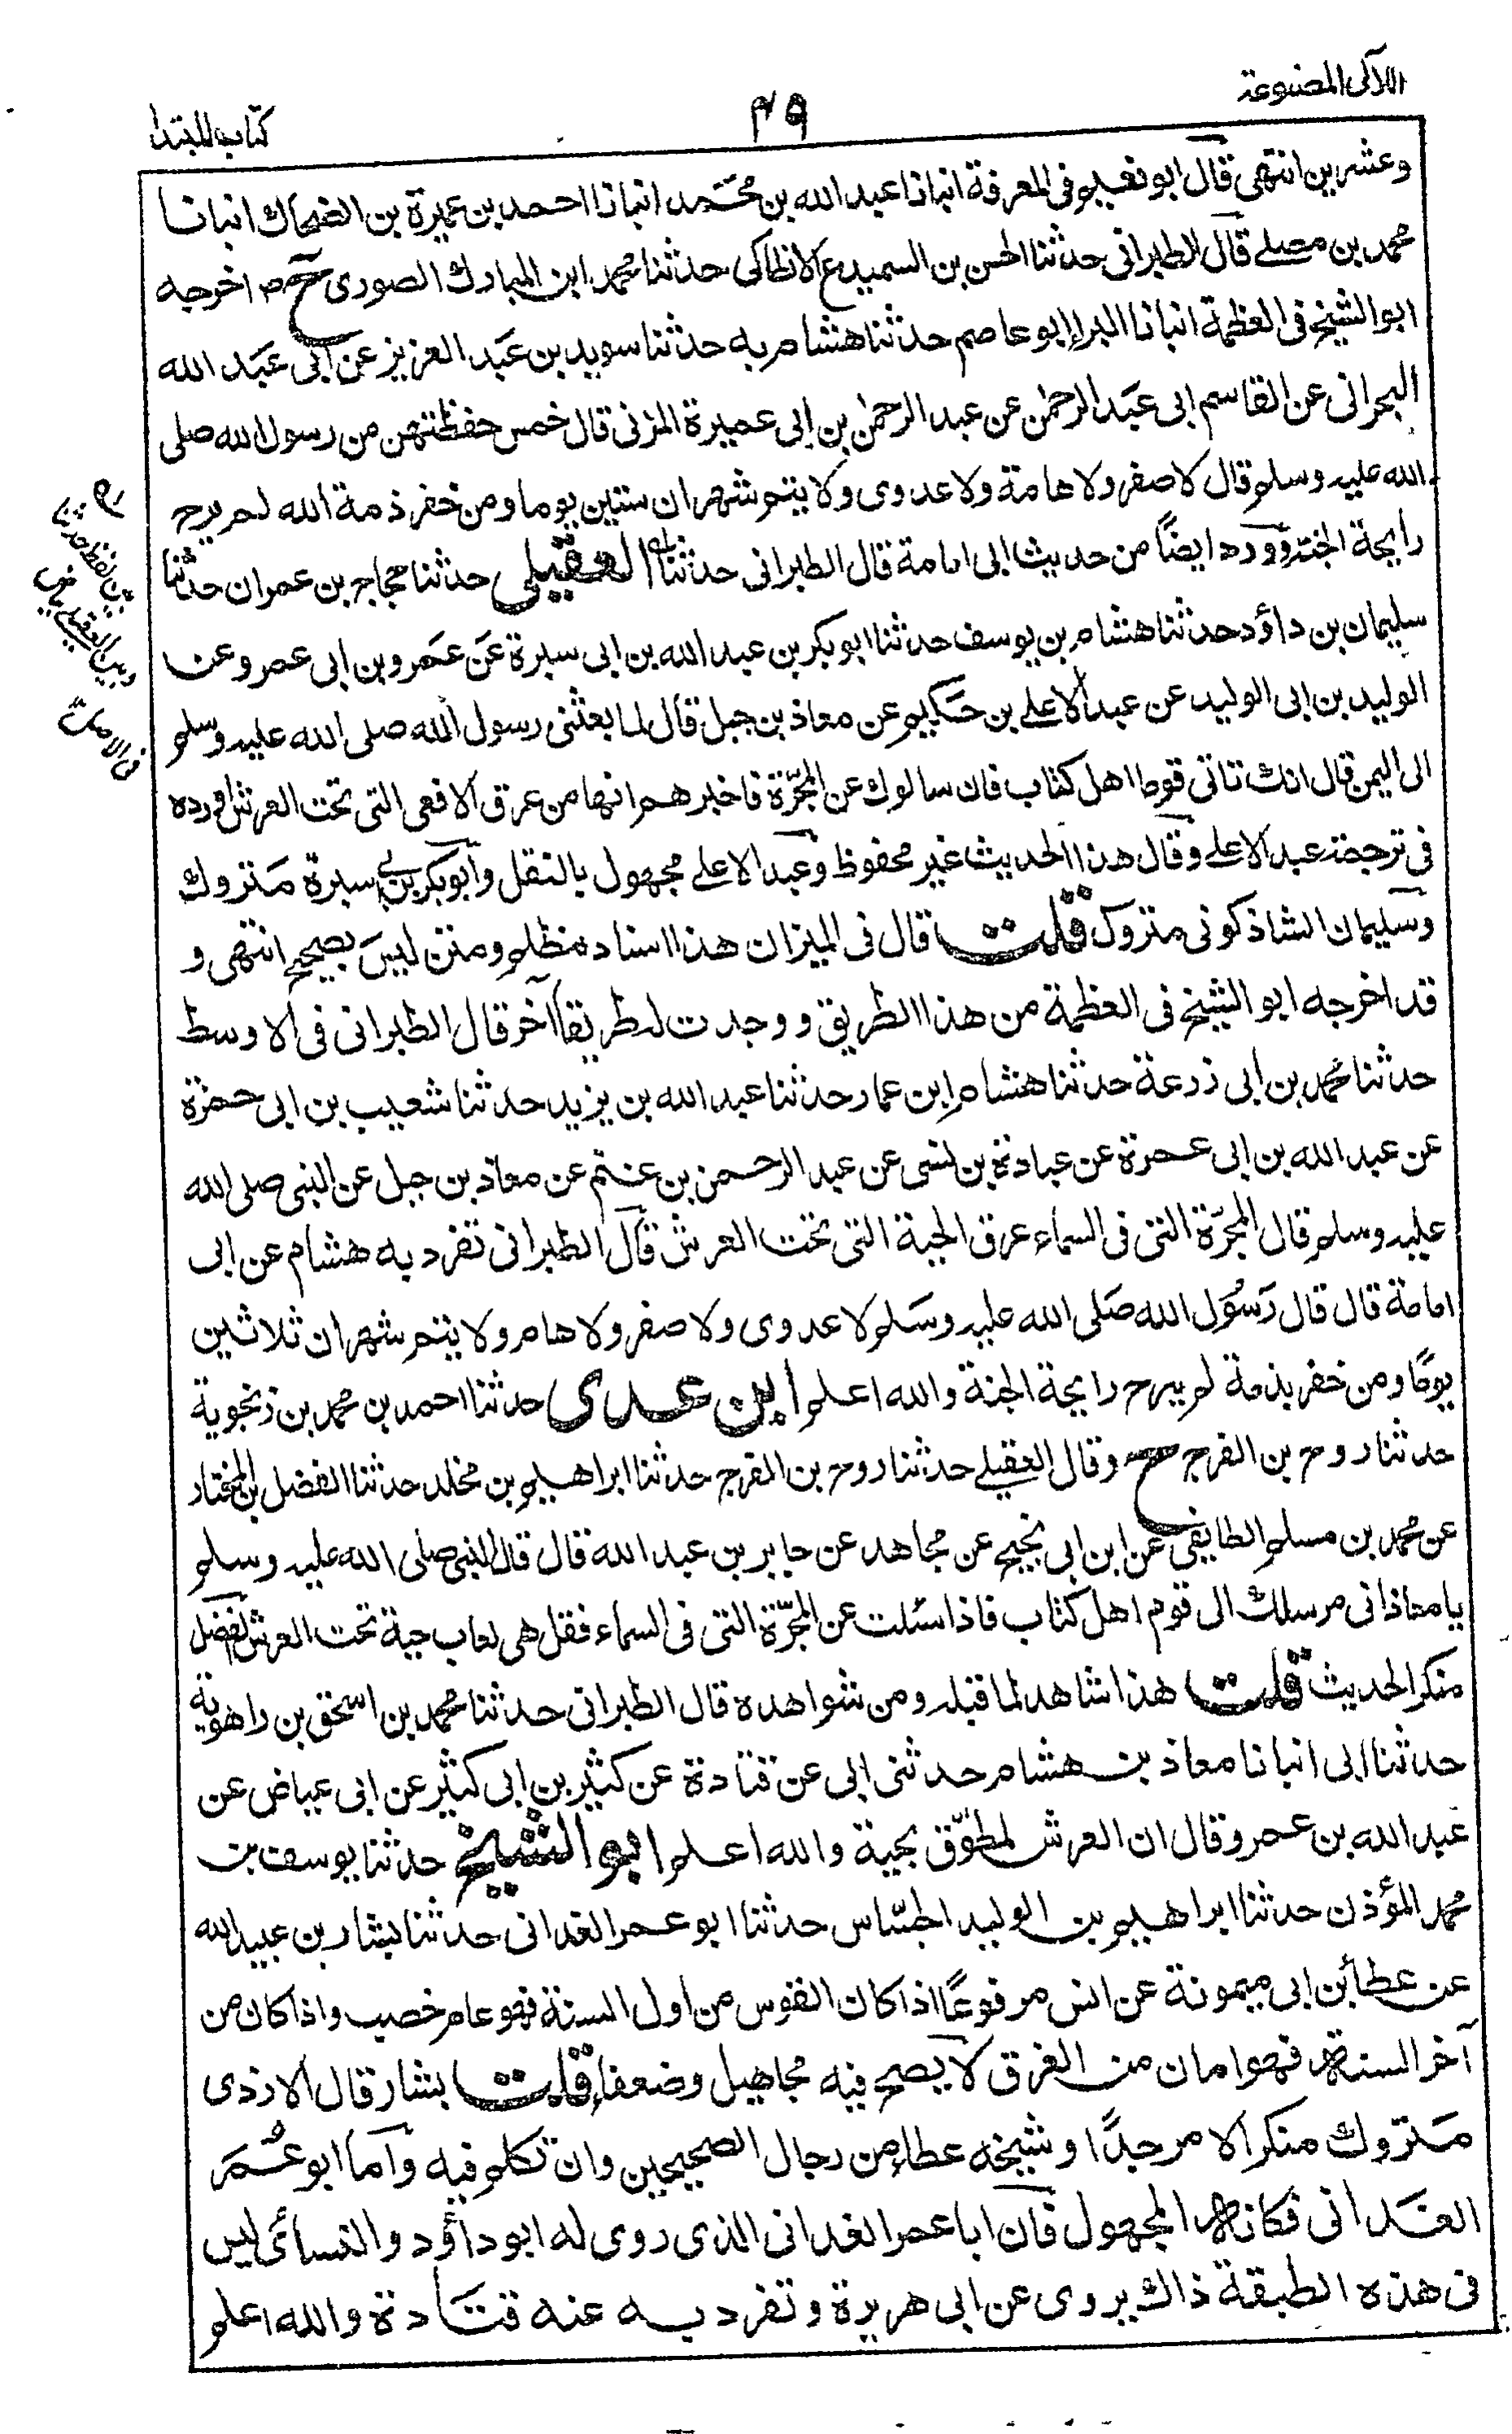 اللآلى المصنوعة
٤٩
كتاب المبتدا
وعشرين انتهى قال ابو نعيم فى المعرفة انبانا عبد الله بن محمد انبانا احمد بن عميرة بن الضحاك انبانا
محمد بن مصلے قال الطبرانى حدثنا الحسن بن السميدع الانطاكى حدثنا محمد ابن المبارك الصورى ح اخرجه
ابو الشيخ فى العظمة انبانا البراء ابو عاصم حدثنا هشام به حدثنا سويد بن عبد العزيز عن ابى عبد الله
البحرانى عن القاسم ابى عبد الرحمن عن عبد الرحمن بن ابى عميرة المزنى قال خمس حفظتهن من رسول الله صلى
الله عليه وسلم قال لا صفر ولا هامة ولا عدوى ولا يتم شهران ستين يوما ومن خفر ذمة الله لم يرح
رايحة الجنة وورد ايضًا من حديث ابى امامة قال الطبرانى حدثنا العقيلى حدثنا حجاج بن عمران حدثنا
سليمان بن داؤد حدثنا هشام بن يوسف حدثنا ابو بكر بن عبد الله بن ابى سبرة عن عمرو بن ابى عمرو عن
الوليد بن ابى الوليد عن عبد الاعلے بن حكيم عن معاذ بن جبل قال لما بعثنى رسول الله صلى الله عليه وسلم
الى اليمن قال انك تاتى قوما اهل كتاب فان سالوك عن المجرّة فاخبرهم انها من عرق الافعى التى تحت العرش اورده
فى ترجمة عبد الاعلے وقال هذا الحديث غير محفوظ وعبد الاعلے مجهول بالنقل وابو بكر بن ابى سبرة متروك
وسليمان الشاذكونى متروك قلت قال فى الميزان هذا اسناد مظلم ومتن ليس بصحيح انتهى و
قد اخرجه ابو الشيخ فى العظمة من هذا الطريق ووجدت له طريقا آخر قال الطبرانى فى الاوسط
حدثنا محمد بن ابى زرعة حدثنا هشام ابن عمار حدثنا عبد الله بن يزيد حدثنا شعيب بن ابى حمزة
عن عبد الله بن ابى عمرة عن عبادة بن نسى عن عبد الرحمن بن غنم عن معاذ بن جبل عن النبى صلى الله
عليه وسلم قال المجرّة التى فى السماء عرق الحية التى تحت العرش قال الطبرانى تفرد به هشام عن ابى
امامة قال قال رسول الله صلى الله عليه وسلم لا عدوى ولا صفر ولا هام ولا يتم شهران ثلاثين
يومًا ومن خفر بذمة لم يرح رايحة الجنة والله اعلم ابن عدى حدثنا احمد بن محمد بن زنجوية
حدثنا روح بن الفرج ح وقال العقيلے حدثنا روح بن الفرج حدثنا ابراهيم بن مخلد حدثنا الفضل بن المختار
عن محمد بن مسلم الطايفى عن ابن ابى نجيح عن مجاهد عن جابر بن عبد الله قال قال النبى صلى الله عليه وسلم
يا معاذ انى مرسلك الى قوم اهل كتاب فاذا سئلت عن المجرّة التى فى السماء فقل هى لعاب حية تحت العرش الفضل
منكر الحديث قلت هذا شاهد لما قبله ومن شواهده قال الطبرانى حدثنا محمد بن اسحق بن راهوية
حدثنا ابى انبانا معاذ بن هشام حدثنى ابى عن قتادة عن كثير بن ابى كثير عن ابى عياض عن
عبد الله بن عمر وقال ان العرش لمطوّق بحية والله اعلم ابو الشيخ حدثنا يوسف بن
محمد المؤذن حدثنا ابراهيم بن الوليد الجسّاس حدثنا ابو عمر الغدانى حدثنا بشار بن عبيد الله
عن عطا بن ابى ميمونة عن انس مرفوعًا اذا كان القوس من اول السنة فهو عام خصيب واذا كان من
آخر السنة فهو امان من الغرق لا يصح فيه مجاهيل وضعفاء قلت بشار قال الازدى
متروك منكر الامر جدًّا وشيخه عطاء من رجال الصحيحين وان تكلم فيه واما ابو عمر
الغدانى فكانه المجهول فان ابا عمر الغدانى الذى روى له ابو داؤد والنسائى ليس
فى هذه الطبقة ذاك يروى عن ابى هريرة وتفرد به عنه قتادة والله اعلم
بين لفظ حدثنا
وبين العقيلے بياض
فى الاصل